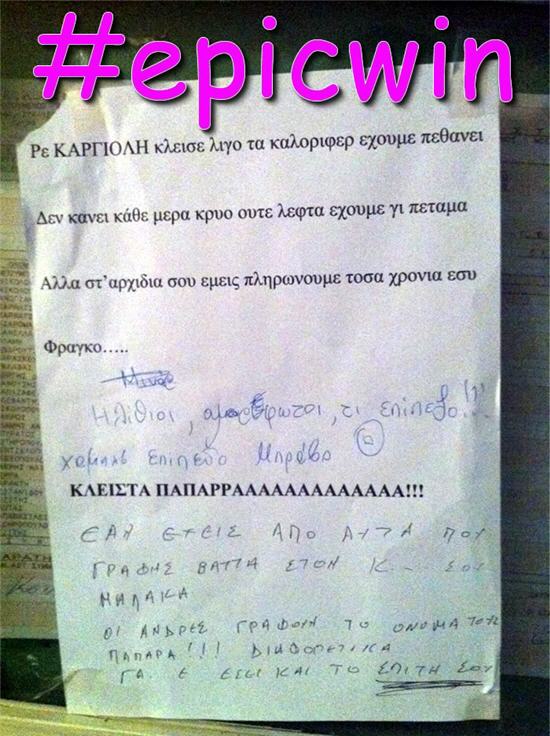 #epicwin
Ρε ΚΑΡΓΙΟΛΗ κλεισε λιγο τα καλοριφερ εχουμε πεθανει
Δεν κανει κάθε μερα κρυο ουτε λεφτα εχουμε γι πεταμα
Αλλα στ’αρχιδια σου εμεις πληρωνουμε τοσα χρονια εσυ
Φραγκο…..
Ηλίθιοι, αμορφωτοι, τι επίπεδο!!!
χαμηλο Επίπεδο Μπράβο
ΚΛΕΙΣΤΑ ΠΑΠΑΡΡΑΑΑΑΑΑΑΑΑΑΑΑΑ!!!
ΕΑΝ ΕΧΕΙΣ ΑΠΟ ΑΥΤΑ ΠΟΥ
ΓΡΑΦΗΣ ΒΑΤΤΑ ΣΤΟΝ Κ... ΣΟΥ
ΜΑΛΑΚΑ
ΟΙ ΑΝΔΡΕΣ ΓΡΑΦΟΥΝ ΤΟ ΟΝΟΜΑ ΤΟΥΣ
ΠΑΠΑΡΑ!!!
ΓΑ. Ε ΕΣΕΙ ΚΑΙ ΤΟ ΣΠΙΤΗ ΣΟΥ